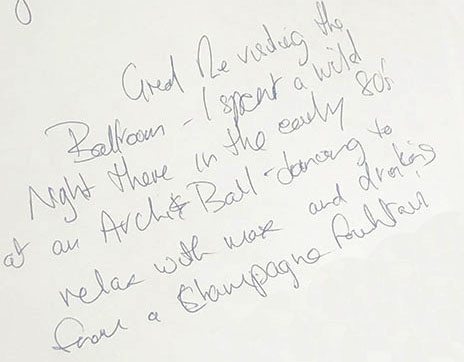 Great Re visiting the
Ballroom - I spent a wild
Night there in the early 80s
at an Archi Ball - dancing to
relax with max and drinking
from a Champagne Fountain